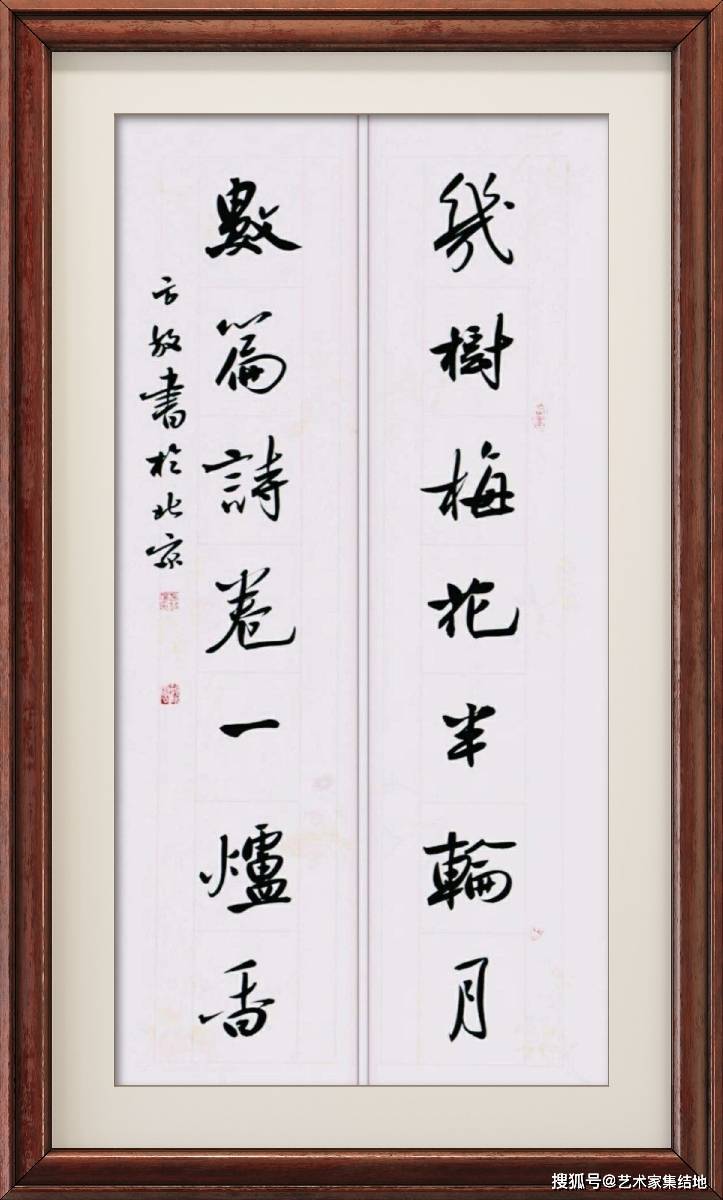 幾樹梅花半輪月
數篇詩卷一爐香
方敏書於北京
搜狐号@艺术家集结地